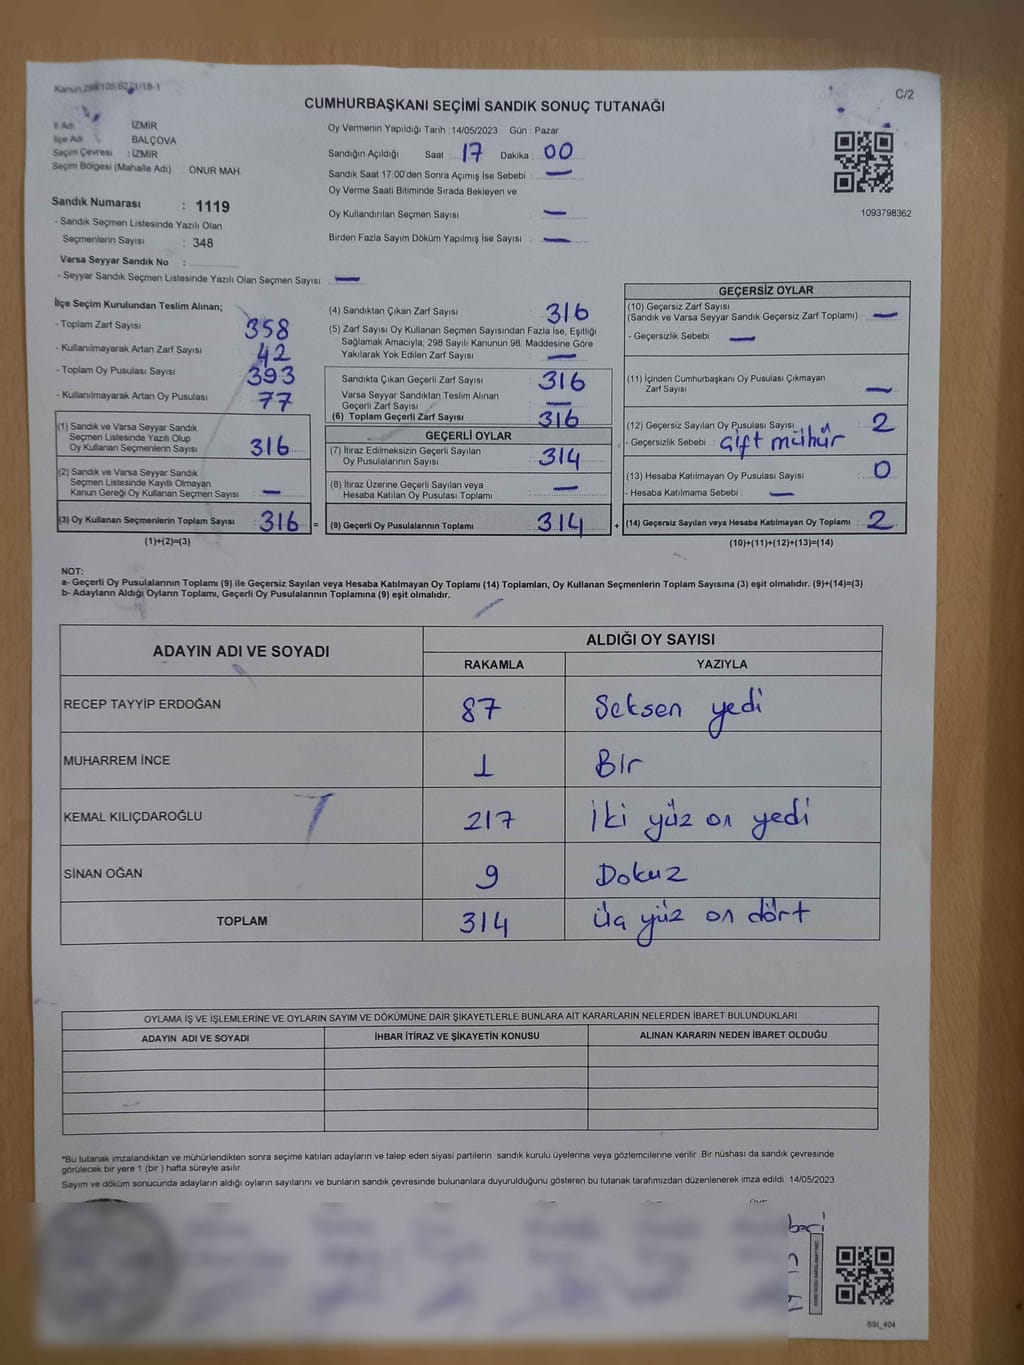 C/2
CUMHURBAŞKANI SEÇİMİ SANDIK SONUÇ TUTANAĞI
İl Adı : İZMİR
İlçe Adı : BALÇOVA
Seçim Çevresi : İZMİR
Seçim Bölgesi (Mahalle Adı) : ONUR MAH.
Oy Vermenin Yapıldığı Tarih : 14/05/2023 Gün : Pazar
Sandığın Açıldığı Saat : 17 Dakika : 00
Sandık Saat 17:00'den Sonra Açımış İse Sebebi : —
Oy Verme Saati Bitiminde Sırada Bekleyen ve
Oy Kullandırılan Seçmen Sayısı : —
Birden Fazla Sayım Döküm Yapılmış İse Sayısı : —
1093798362
Sandık Numarası : 1119
- Sandık Seçmen Listesinde Yazılı Olan
Seçmenlerin Sayısı : 348
Varsa Seyyar Sandık No :
- Seyyar Sandık Seçmen Listesinde Yazılı Olan Seçmen Sayısı : —
İlçe Seçim Kurulundan Teslim Alınan;
- Toplam Zarf Sayısı : 358
- Kullanılmayarak Artan Zarf Sayısı : 42
- Toplam Oy Pusulası Sayısı : 393
- Kullanılmayarak Artan Oy Pusulası : 77
(1) Sandık ve Varsa Seyyar Sandık
Seçmen Listesinde Yazılı Olup
Oy Kullanan Seçmenlerin Sayısı : 316
(2) Sandık ve Varsa Seyyar Sandık
Seçmen Listesinde Kayıtlı Olmayan
Kanun Gereği Oy Kullanan Seçmen Sayısı : —
(3) Oy Kullanan Seçmenlerin Toplam Sayısı : 316 =
(1)+(2)=(3)
(4) Sandıktan Çıkan Zarf Sayısı : 316
(5) Zarf Sayısı Oy Kullanan Seçmen Sayısından Fazla İse, Eşitliği
Sağlamak Amacıyla; 298 Sayılı Kanunun 98. Maddesine Göre
Yakılarak Yok Edilen Zarf Sayısı : —
Sandıkta Çıkan Geçerli Zarf Sayısı : 316
Varsa Seyyar Sandıktan Teslim Alınan
Geçerli Zarf Sayısı : —
(6) Toplam Geçerli Zarf Sayısı : 316
GEÇERLİ OYLAR
(7) İtiraz Edilmeksizin Geçerli Sayılan
Oy Pusulalarının Sayısı : 314
(8) İtiraz Üzerine Geçerli Sayılan veya
Hesaba Katılan Oy Pusulası Toplamı : —
(9) Geçerli Oy Pusulalarının Toplamı : 314 +
GEÇERSİZ OYLAR
(10) Geçersiz Zarf Sayısı
(Sandık ve Varsa Seyyar Sandık Geçersiz Zarf Toplamı) : —
- Geçersizlik Sebebi : —
(11) İçinden Cumhurbaşkanı Oy Pusulası Çıkmayan
Zarf Sayısı : —
(12) Geçersiz Sayılan Oy Pusulası Sayısı : 2
- Geçersizlik Sebebi : Çift mühür
(13) Hesaba Katılmayan Oy Pusulası Sayısı : 0
- Hesaba Katılmama Sebebi : —
(14) Geçersiz Sayılan veya Hesaba Katılmayan Oy Toplamı : 2
(10)+(11)+(12)+(13)=(14)
NOT:
a- Geçerli Oy Pusulalarının Toplamı (9) ile Geçersiz Sayılan veya Hesaba Katılmayan Oy Toplamı (14) Toplamları, Oy Kullanan Seçmenlerin Toplam Sayısına (3) eşit olmalıdır. (9)+(14)=(3)
b- Adayların Aldığı Oyların Toplamı, Geçerli Oy Pusulalarının Toplamına (9) eşit olmalıdır.
ADAYIN ADI VE SOYADI
ALDIĞI OY SAYISI
RAKAMLA YAZIYLA
RECEP TAYYİP ERDOĞAN 87 Seksen yedi
MUHARREM İNCE 1 Bir
KEMAL KILIÇDAROĞLU 217 İki yüz on yedi
SİNAN OĞAN 9 Dokuz
TOPLAM 314 Üç yüz on dört
OYLAMA İŞ VE İŞLEMLERİNE VE OYLARIN SAYIM VE DÖKÜMÜNE DAİR ŞİKAYETLERLE BUNLARA AİT KARARLARIN NELERDEN İBARET BULUNDUKLARI
ADAYIN ADI VE SOYADI İHBAR İTİRAZ VE ŞİKAYETİN KONUSU ALINAN KARARIN NEDEN İBARET OLDUĞU
*Bu tutanak imzalandıktan ve mühürlendikten sonra seçime katılan adayların ve talep eden siyasi partilerin sandık kurulu üyelerine veya gözlemcilerine verilir. Bir nüshası da sandık çevresinde
görülecek bir yere 1 (bir ) hafta süreyle asılır.
Sayım ve döküm sonucunda adayların aldığı oyların sayılarını ve bunların sandık çevresinde bulunanlara duyurulduğunu gösteren bu tutanak tarafımızdan düzenlenerek imza edildi. 14/05/2023
BSI_404